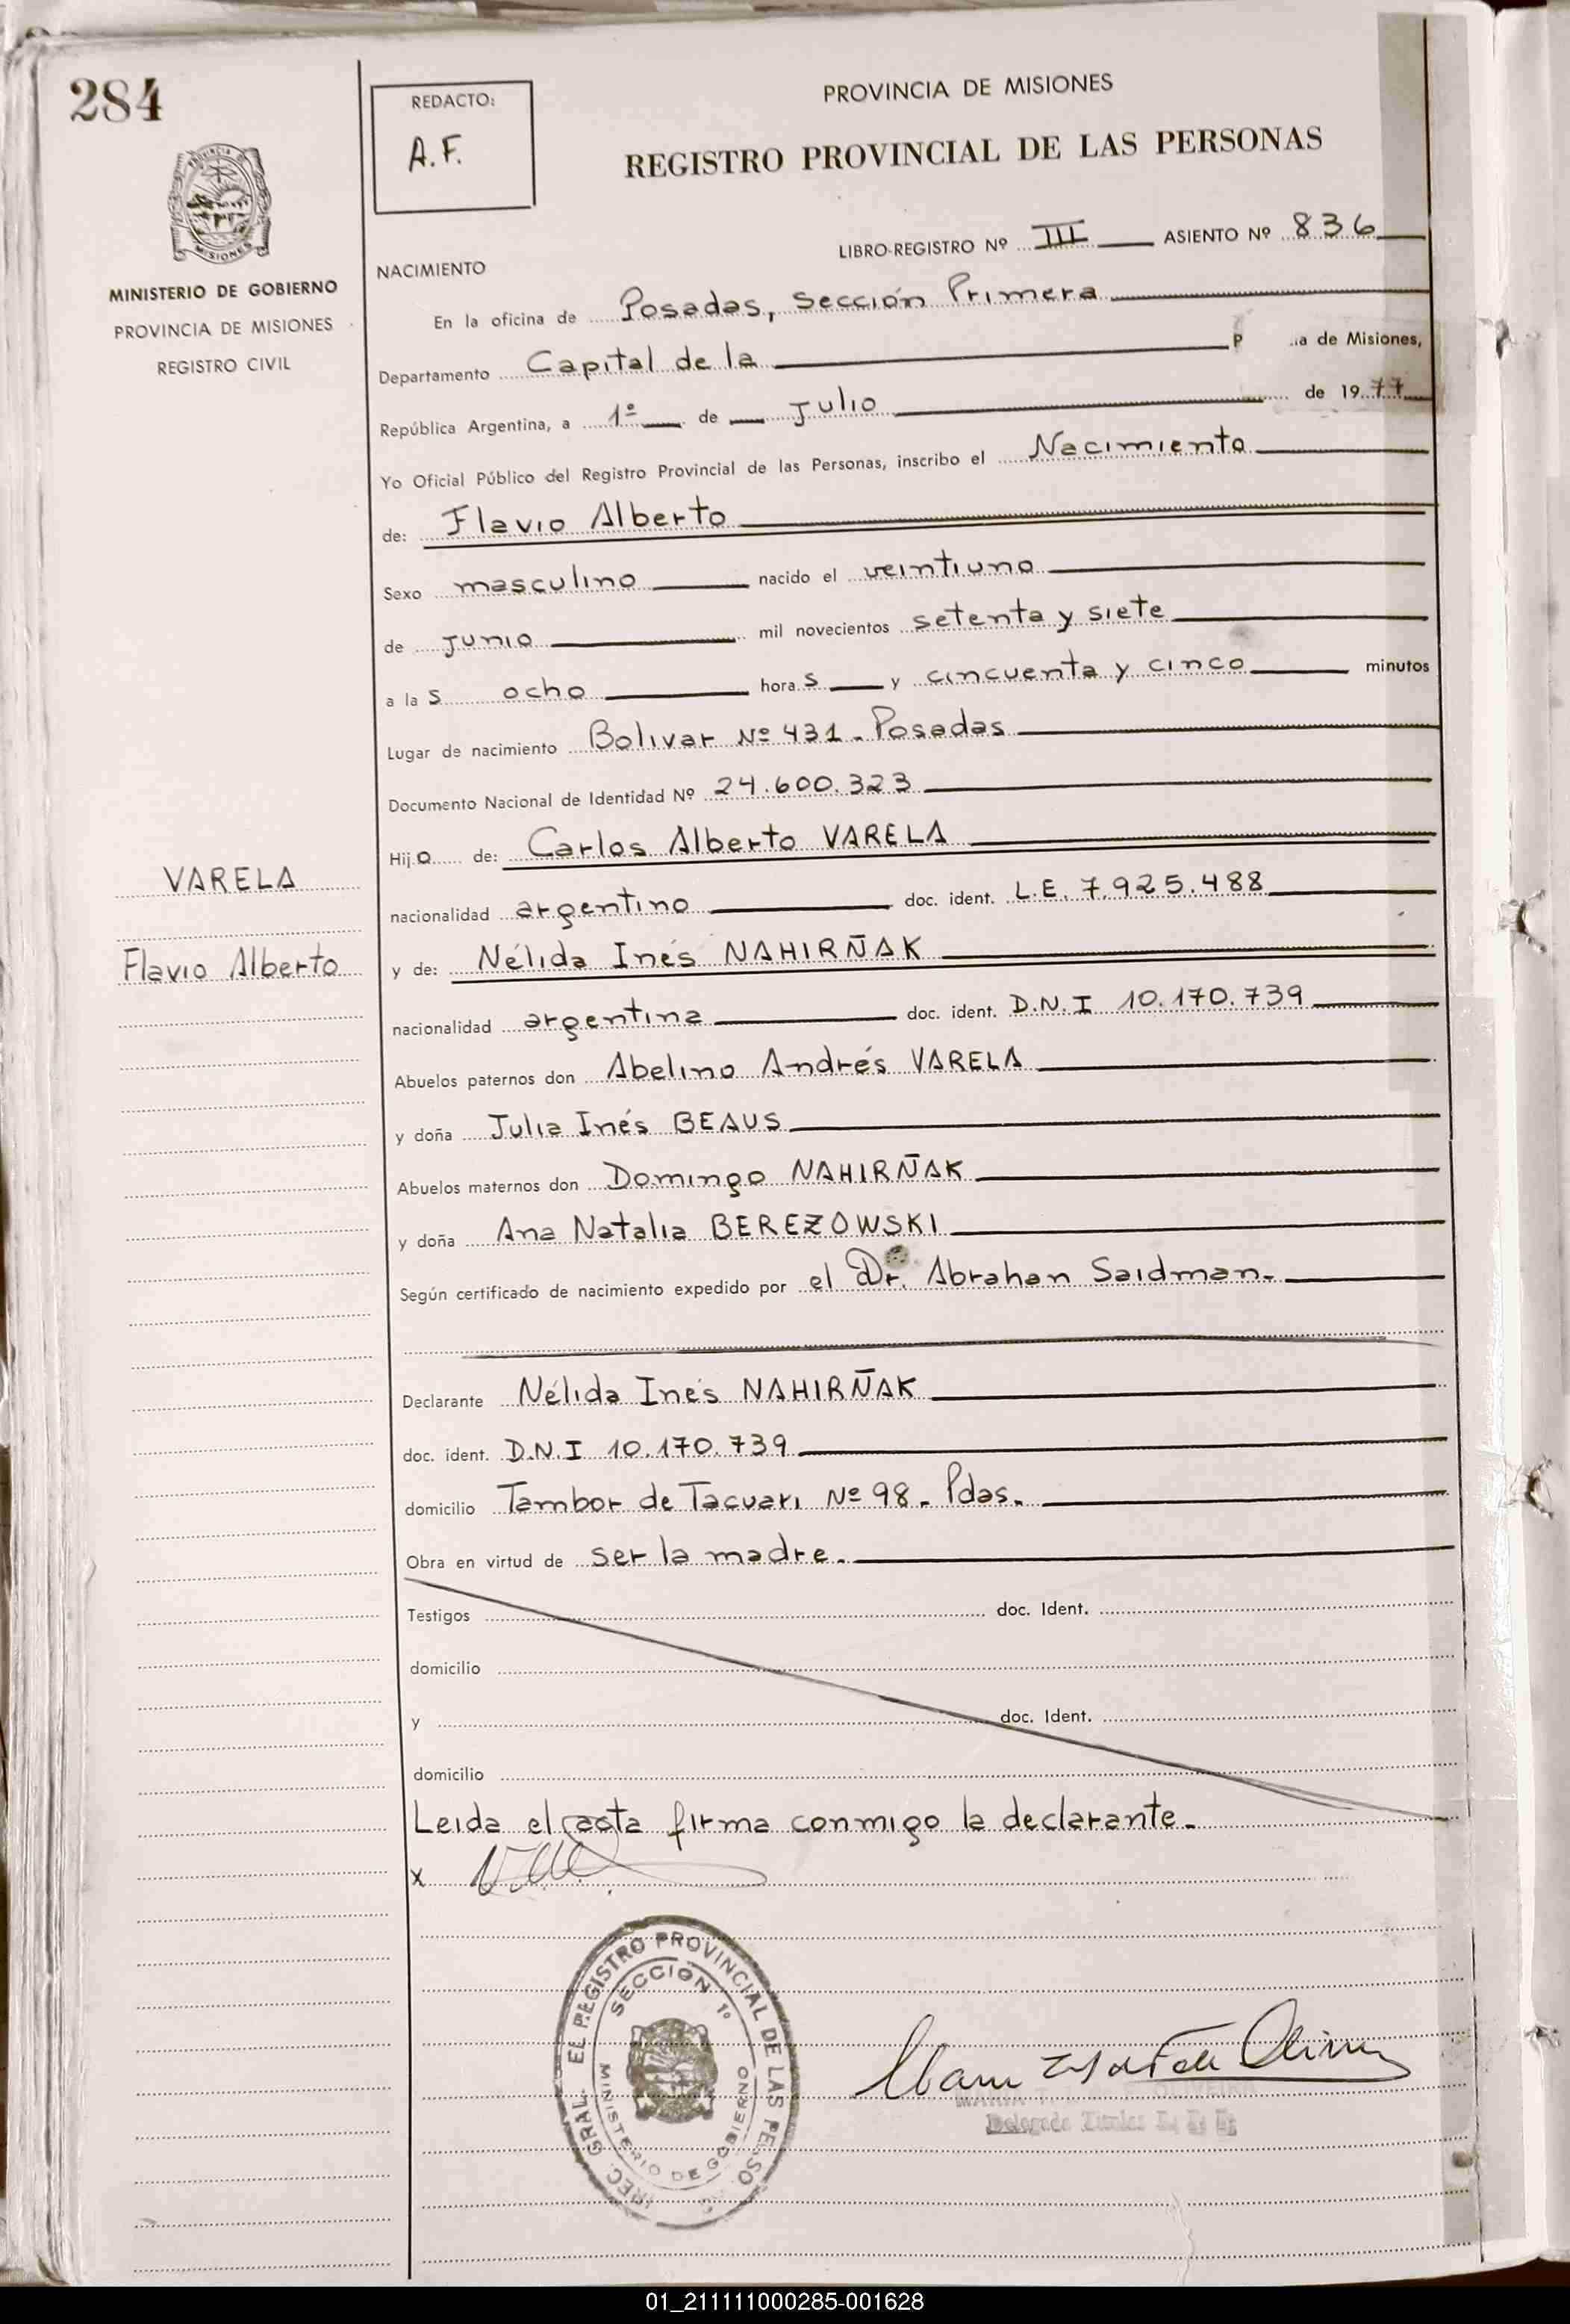 284
REDACTO:
A.F.
PROVINCIA DE MISIONES
REGISTRO PROVINCIAL DE LAS PERSONAS
LIBRO-REGISTRO Nº III ASIENTO Nº 836
MISIONES
MINISTERIO DE GOBIERNO
PROVINCIA DE MISIONES
REGISTRO CIVIL
NACIMIENTO
En la oficina de Posadas, Sección Primera
Departamento Capital de la P ia de Misiones,
República Argentina, a 1º de Julio de 1977
Yo Oficial Público del Registro Provincial de las Personas, inscribo el Nacimiento
de: Flavio Alberto
Sexo masculino nacido el veintiuno
de Junio mil novecientos setenta y siete
a las ocho horas y cincuenta y cinco minutos
Lugar de nacimiento Bolivar Nº 431 - Posadas
Documento Nacional de Identidad Nº 24.600.323
Hijo de: Carlos Alberto VARELA
VARELA
nacionalidad argentino doc. ident. L.E. 7.925.488
Flavio Alberto
y de: Nélida Inés NAHIRÑAK
nacionalidad argentina doc. ident. D.N.I 10.170.739
Abuelos paternos don Abelino Andrés VARELA
y doña Julia Inés BEAUS
Abuelos maternos don Domingo NAHIRÑAK
y doña Ana Natalia BEREZOWSKI
Según certificado de nacimiento expedido por el Dr. Abrahan Saidman.
Declarante Nélida Inés NAHIRÑAK
doc. ident. D.N.I 10.170.739
domicilio Tambor de Tacuari Nº 98 - Pdas.
Obra en virtud de ser la madre.
Testigos doc. Ident.
domicilio
y doc. Ident.
domicilio
Leida el acta firma conmigo la declarante.
x
IREC. GRAL. EL REGISTRO PROVINCIAL DE LAS PERSO
SECCION 1º
MINISTERIO DE GOBIERNO
OLIVEIRA
Delegado
01_211111000285-001628